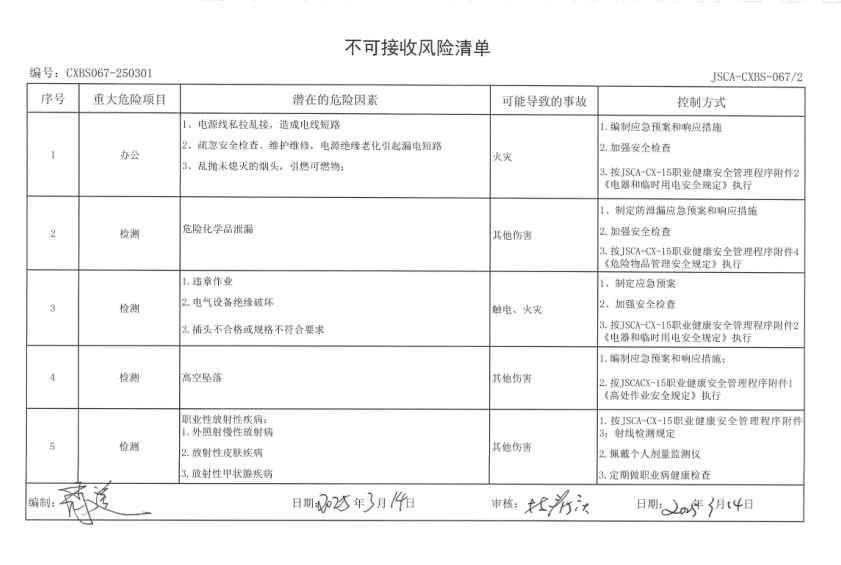 不可接收风险清单
编号：CXBS067-250301
JSCA-CXBS-067/2
序号 重大危险项目 潜在的危险因素 可能导致的事故 控制方式
1 办公
1、电源线私拉乱接，造成电线短路
2、疏忽安全检查、维护维修，电源绝缘老化引起漏电短路
3、乱抛未熄灭的烟头，引燃可燃物;
火灾
1.编制应急预案和响应措施
2.加强安全检查
3.按JSCA-CX-15职业健康安全管理程序附件2
《电器和临时用电安全规定》执行
2 检测
危险化学品泄漏
其他伤害
1、制定防泄漏应急预案和响应措施
2.加强安全检查
3.按JSCA-CX-15职业健康安全管理程序附件4
《危险物品管理安全规定》执行
3 检测
1.违章作业
2.电气设备绝缘破坏
3.插头不合格或规格不符合要求
触电、火灾
1、制定应急预案
2、加强安全检查
3.按JSCA-CX-15职业健康安全管理程序附件2
《电器和临时用电安全规定》执行
4 检测
高空坠落
其他伤害
1.编制应急预案和响应措施;
2.按JSCACX-15职业健康安全管理程序附件1
《高处作业安全规定》执行
5 检测
职业性放射性疾病:
1.外照射慢性放射病
2.放射性皮肤疾病
3.放射性甲状腺疾病
其他伤害
1.按JSCA-CX-15职业健康安全管理程序附件
3：射线检测规定
2.佩戴个人剂量监测仪
3.定期做职业病健康检查
编制: 日期: 2025年3月14日 审核: 日期: 2025年3月14日